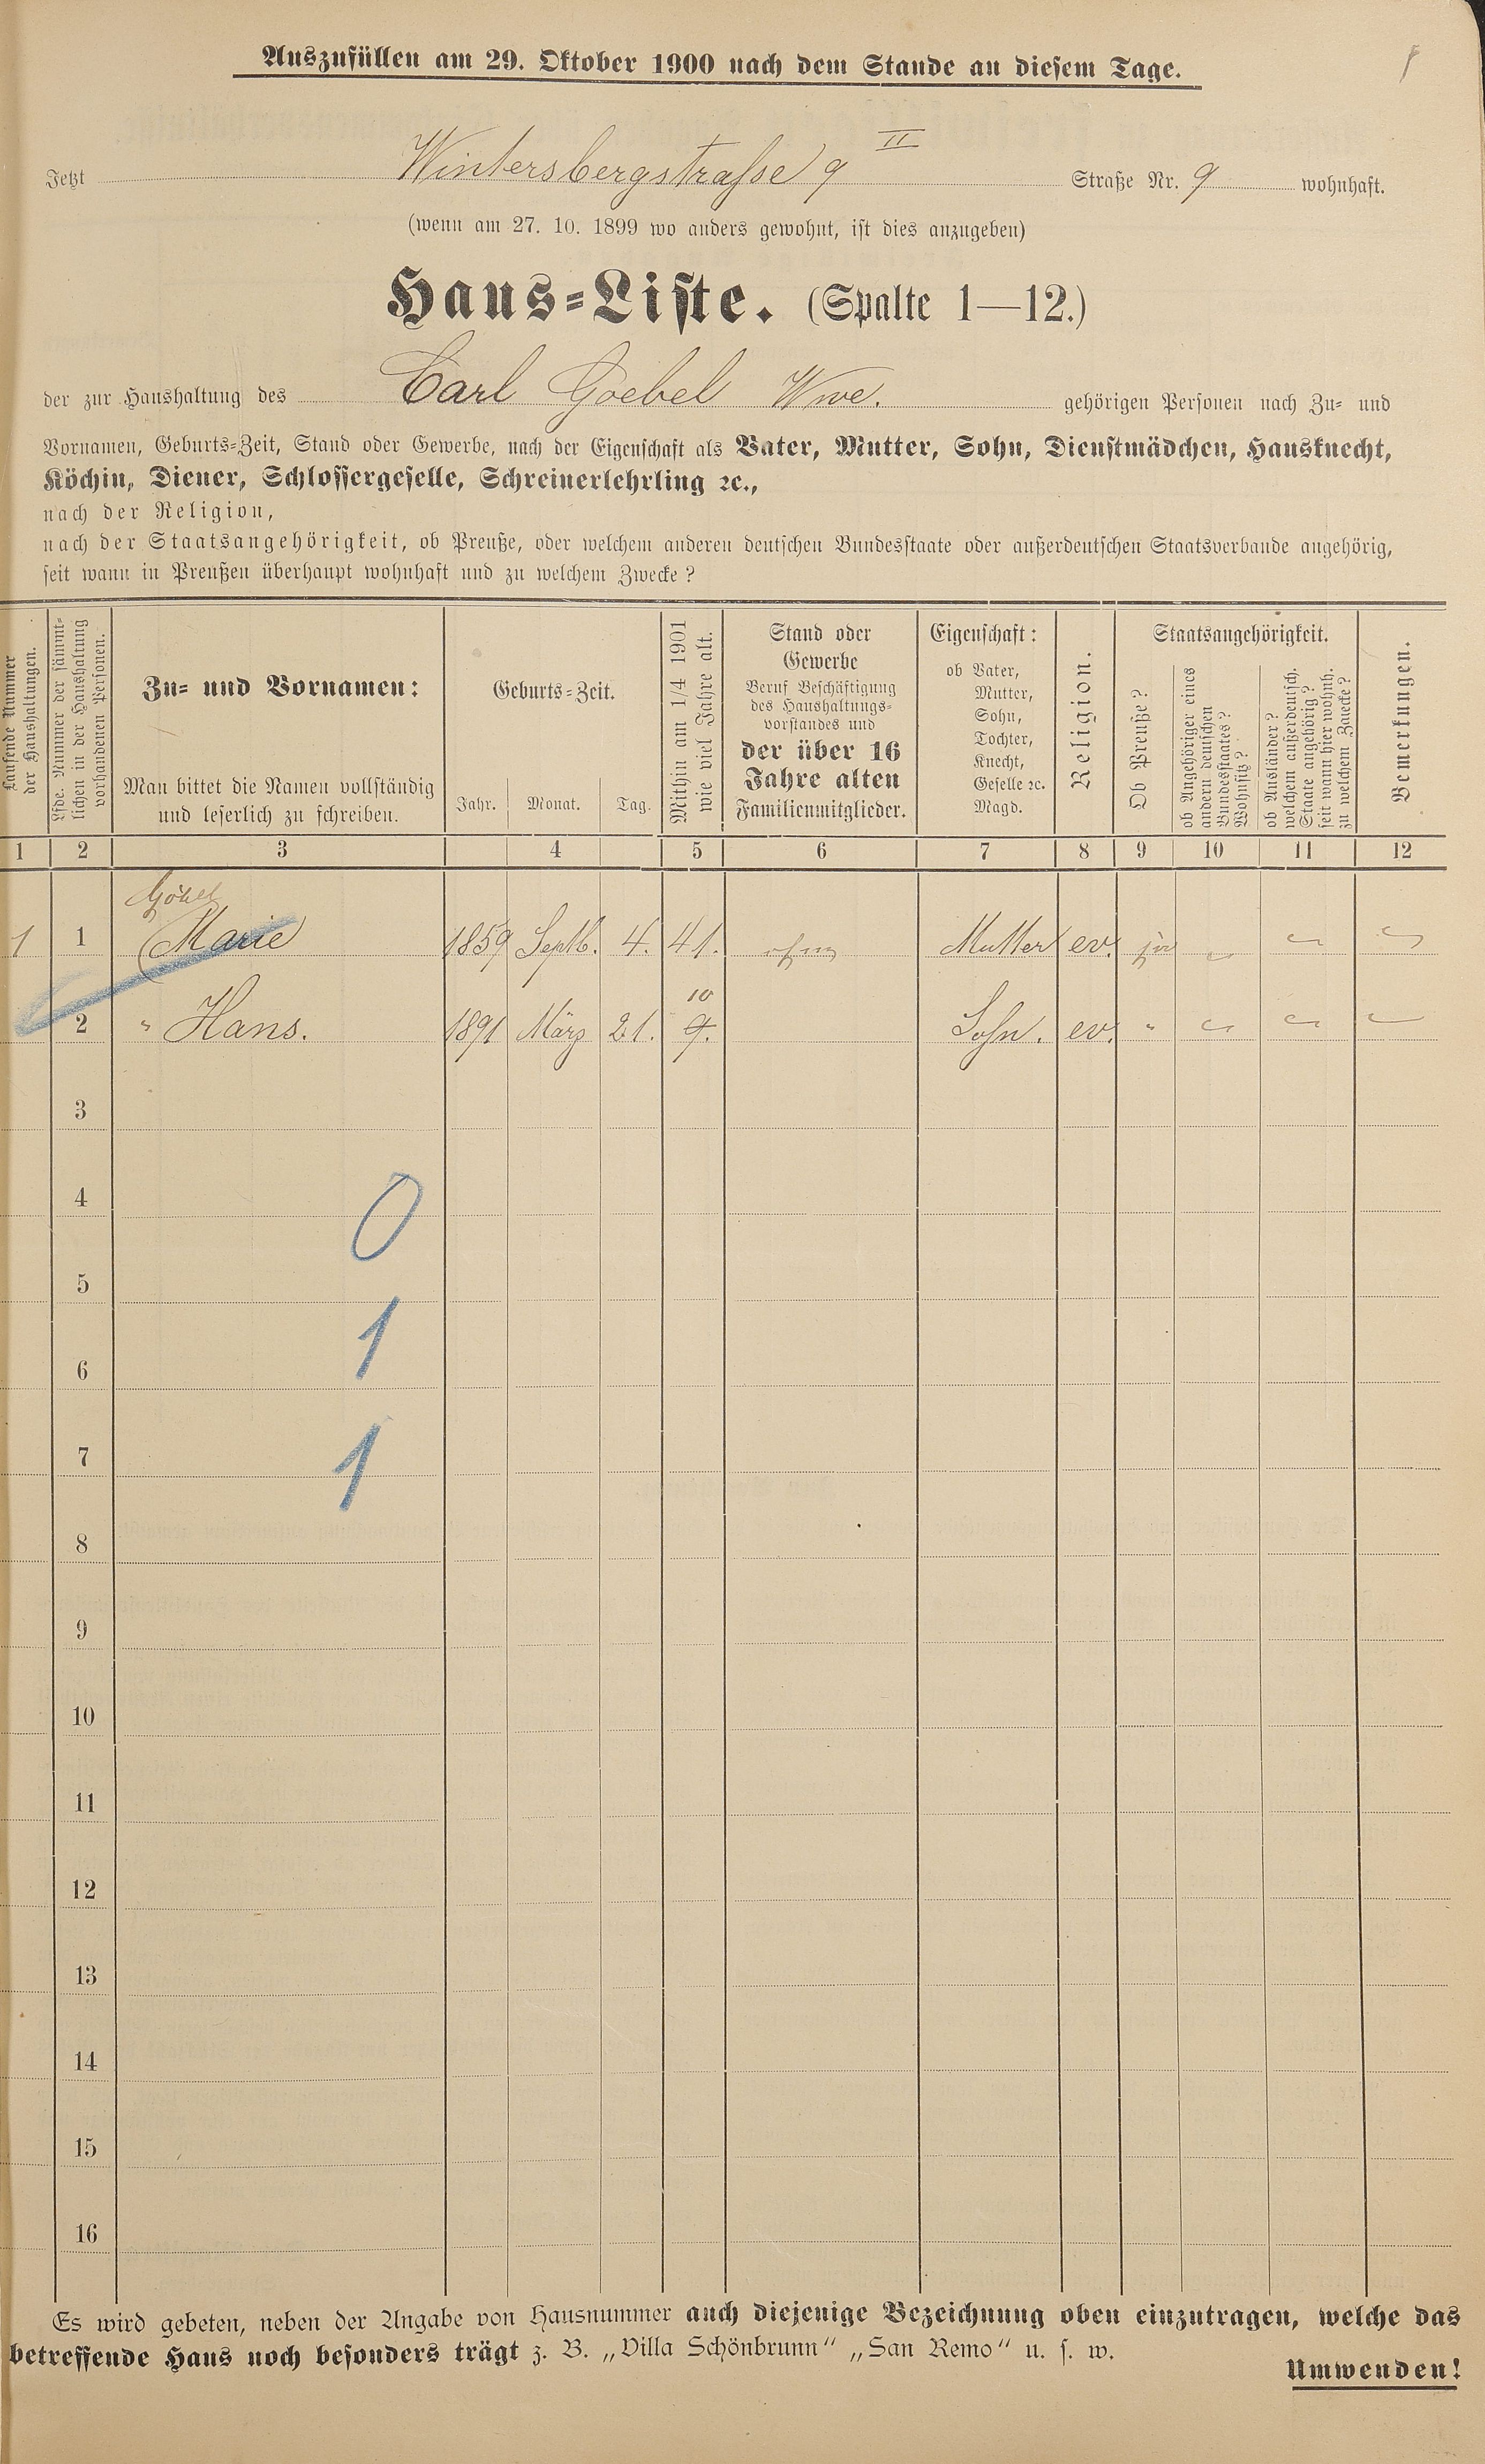 Auszufüllen am 29. Oktober 1900 nach dem Stande an diesem Tage.
Jetzt Wintersbergstraſse 9 II Straße Nr. 9 wohnhaft.
(wenn am 27. 10. 1899 wo anders gewohnt, ist dies anzugeben)
Haus=Liste. (Spalte 1—12.)
der zur Haushaltung des Carl Goebel Wwe. gehörigen Personen nach Zu= und
Vornamen, Geburts=Zeit, Stand oder Gewerbe, nach der Eigenschaft als Vater, Mutter, Sohn, Dienstmädchen, Hausknecht,
Köchin, Diener, Schlossergeselle, Schreinerlehrling ꝛc.,
nach der Religion,
nach der Staatsangehörigkeit, ob Preuße, oder welchem anderen deutschen Bundesstaate oder außerdeutschen Staatsverbande angehörig,
seit wann in Preußen überhaupt wohnhaft und zu welchem Zwecke?
Laufende Nummer
der Haushaltungen.
Lfde. Nummer der sämmt=
lichen in der Haushaltung
vorhandenen Personen.
Zu= und Vornamen:
Man bittet die Namen vollständig
und leserlich zu schreiben.
Geburts=Zeit.
Jahr. Monat. Tag.
Mithin am 1/4 1901
wie viel Jahre alt.
Stand oder
Gewerbe
Beruf Beschäftigung
des Haushaltungs=
vorstandes und
der über 16
Jahre alten
Familienmitglieder.
Eigenschaft:
ob Vater,
Mutter,
Sohn,
Tochter,
Knecht,
Geselle ꝛc.
Magd.
Religion.
Staatsangehörigkeit.
Ob Preuße?
ob Angehöriger eines
andern deutschen
Bundesstaates?
Wohnsitz?
ob Ausländer?
welchem außerdeutsch.
Staate angehörig?
seit wann hier wohnh.
zu welchem Zwecke?
Bemerkungen.
1 2 3 4 5 6 7 8 9 10 11 12
Göbel
1 1 Marie 1859 Septb. 4. 41. ohne Mutter ev. ja
10
2 " Hans. 1891 März 21. 9. Sohn. ev. "
3
4
0
5
1
6
7
1
8
9
10
11
12
13
14
15
16
Es wird gebeten, neben der Angabe von Hausnummer auch diejenige Bezeichnung oben einzutragen, welche das
betreffende Haus noch besonders trägt z. B. „Villa Schönbrunn“ „San Remo“ u. s. w.
Umwenden!